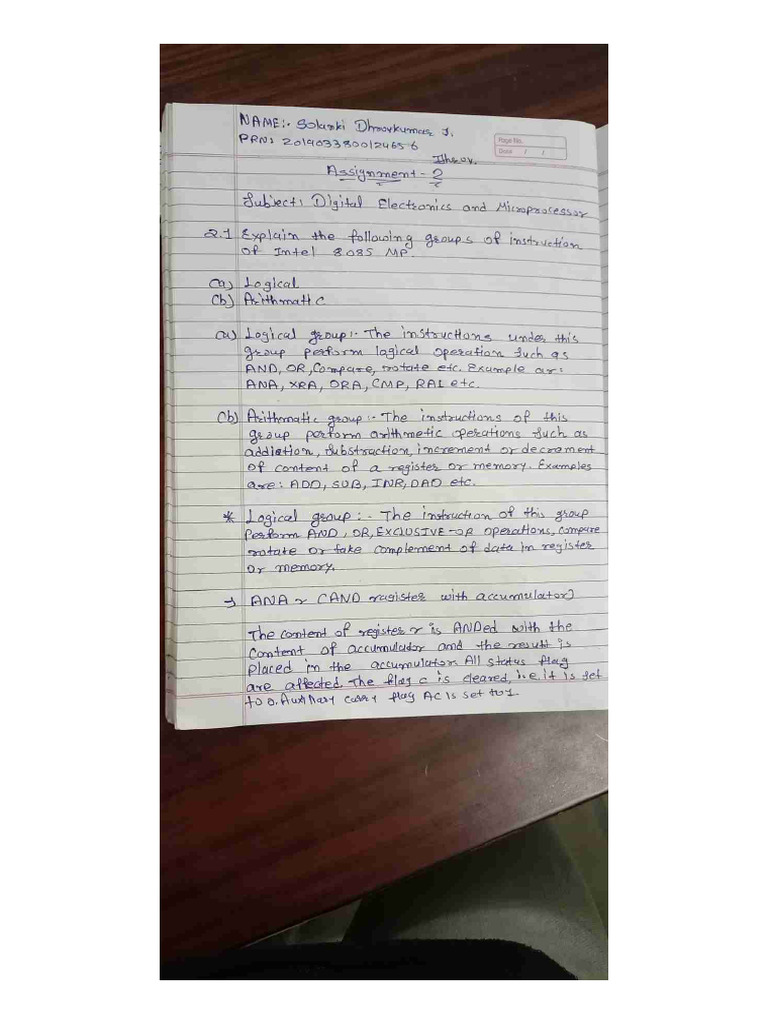 NAME:- Solanki Dhruvkumar J.
PRN: 2019033800124656
Page No.
Date / /
Assignment - 2
Subject: Digital Electronics and Microprocessor
Q.1 Explain the following groups of instruction
of Intel 8085 MP.
(a) Logical
(b) Arithmatic
(a) Logical group:- The instructions under this
group perform logical operation such as
AND, OR, Compare, rotate etc. Example are:
ANA, XRA, ORA, CMP, RAL etc.
(b) Arithmatic group:- The instructions of this
group perform arithmetic operations such as
addiation, Substraction, increment or decrement
of content of a register or memory. Examples
are: ADD, SUB, INR, DAD etc.
* Logical group:- The instruction of this group
Perform AND, OR, EXCLUSIVE-OR operations, compare
rotate or take complement of data in register
or memory.
→ ANA r (AND ragister with accumulator)
The content of register r is ANDed with the
content of accumulator and the result is
placed in the accumulator. All status flag
are affected. The flag c is cleared, i.e. it is set
to 0. Auxillary carry flag AC is set to 1